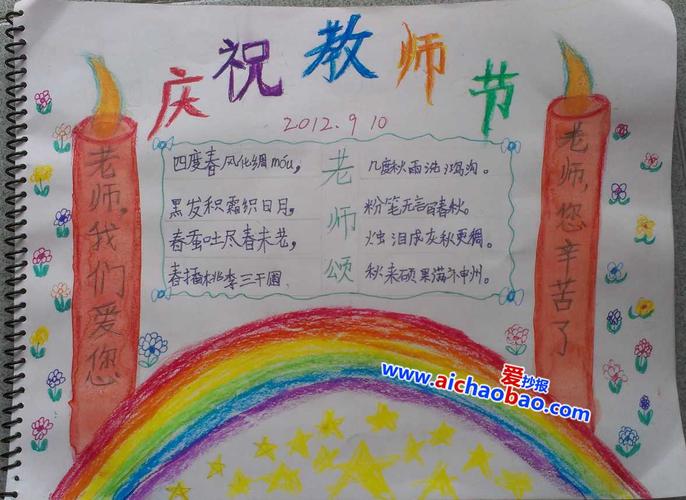 庆祝教师节
2012.9 10
老师，我们爱您
四度春风化绸móu，
黑发积霜织日月，
春蚕吐尽春未老，
春播桃李三千圃，
老师颂
几度秋雨洗鸿沟。
粉笔无言写春秋。
烛泪成灰秋更稠。
秋来硕果满神州。
老师，您辛苦了
爱抄报
www.aichaobao.com